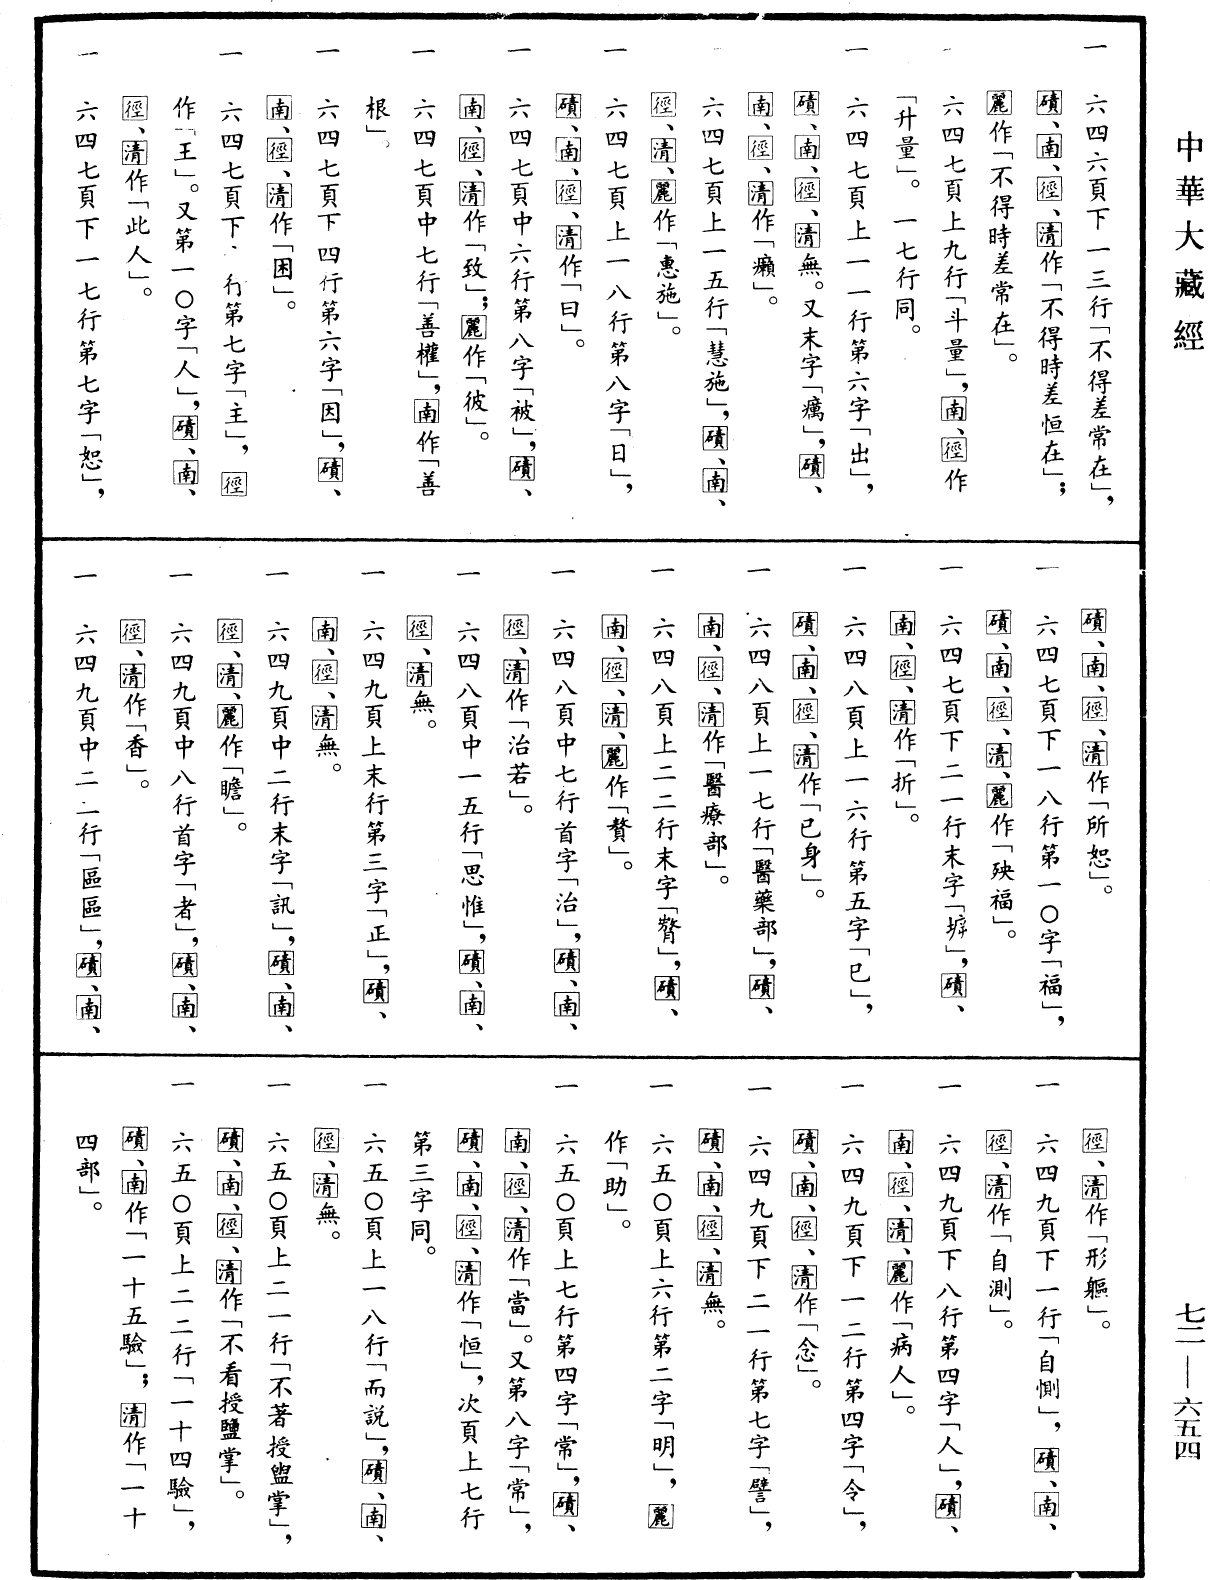 中華大藏經
一 六四六頁下一三行「不得差常在」，
磧、南、徑、清作「不得時差恒在」；
麗作「不得時差常在」。
一 六四七頁上九行「斗量」，南、徑作
「升量」。一七行同。
一 六四七頁上一一行第六字「出」，
磧、南、徑、清無。又末字「癘」，磧、
南、徑、清作「癩」。
一 六四七頁上一五行「慧施」，磧、南、
徑、清、麗作「惠施」。
一 六四七頁上一八行第八字「日」，
磧、南、徑、清作「曰」。
一 六四七頁中六行第八字「被」，磧、
南、徑、清作「致」；麗作「彼」。
一 六四七頁中七行「善權」，南作「善
根」。
一 六四七頁下四行第六字「因」，磧、
南、徑、清作「困」。
一 六四七頁下 行第七字「主」，徑
作「王」。又第一〇字「人」，磧、南、
徑、清作「此人」。
一 六四七頁下一七行第七字「恕」，
磧、南、徑、清作「所恕」。
一 六四七頁下一八行第一〇字「福」，
磧、南、徑、清、麗作「殃福」。
一 六四七頁下二一行末字「㙤」，磧、
南、徑、清作「折」。
一 六四八頁上一六行第五字「已」，
磧、南、徑、清作「已身」。
一 六四八頁上一七行「醫藥部」，磧、
南、徑、清作「醫療部」。
一 六四八頁上二二行末字「贅」，磧、
南、徑、清、麗作「贅」。
一 六四八頁中七行首字「治」，磧、南、
徑、清作「治若」。
一 六四八頁中一五行「思惟」，磧、南、
徑、清無。
一 六四九頁上末行第三字「正」，磧、
南、徑、清無。
一 六四九頁中二行末字「訊」，磧、南、
徑、清、麗作「瞻」。
一 六四九頁中八行首字「者」，磧、南、
徑、清作「香」。
一 六四九頁中二一行「區區」，磧、南、
徑、清作「形軀」。
一 六四九頁下一行「自惻」，磧、南、
徑、清作「自測」。
一 六四九頁下八行第四字「人」，磧、
南、徑、清、麗作「病人」。
一 六四九頁下一二行第四字「令」，
磧、南、徑、清作「念」。
一 六四九頁下二一行第七字「譬」，
磧、南、徑、清無。
一 六五〇頁上六行第二字「明」，麗
作「助」。
一 六五〇頁上七行第四字「常」，磧、
南、徑、清作「當」。又第八字「常」，
磧、南、徑、清作「恒」，次頁上七行
第三字同。
一 六五〇頁上一八行「而説」，磧、南、
徑、清無。
一 六五〇頁上二一行「不著授盥掌」，
磧、南、徑、清作「不看授鹽掌」。
一 六五〇頁上二二行「一十四驗」，
磧、南作「一十五驗」；清作「一十
四部」。
七二——六五四